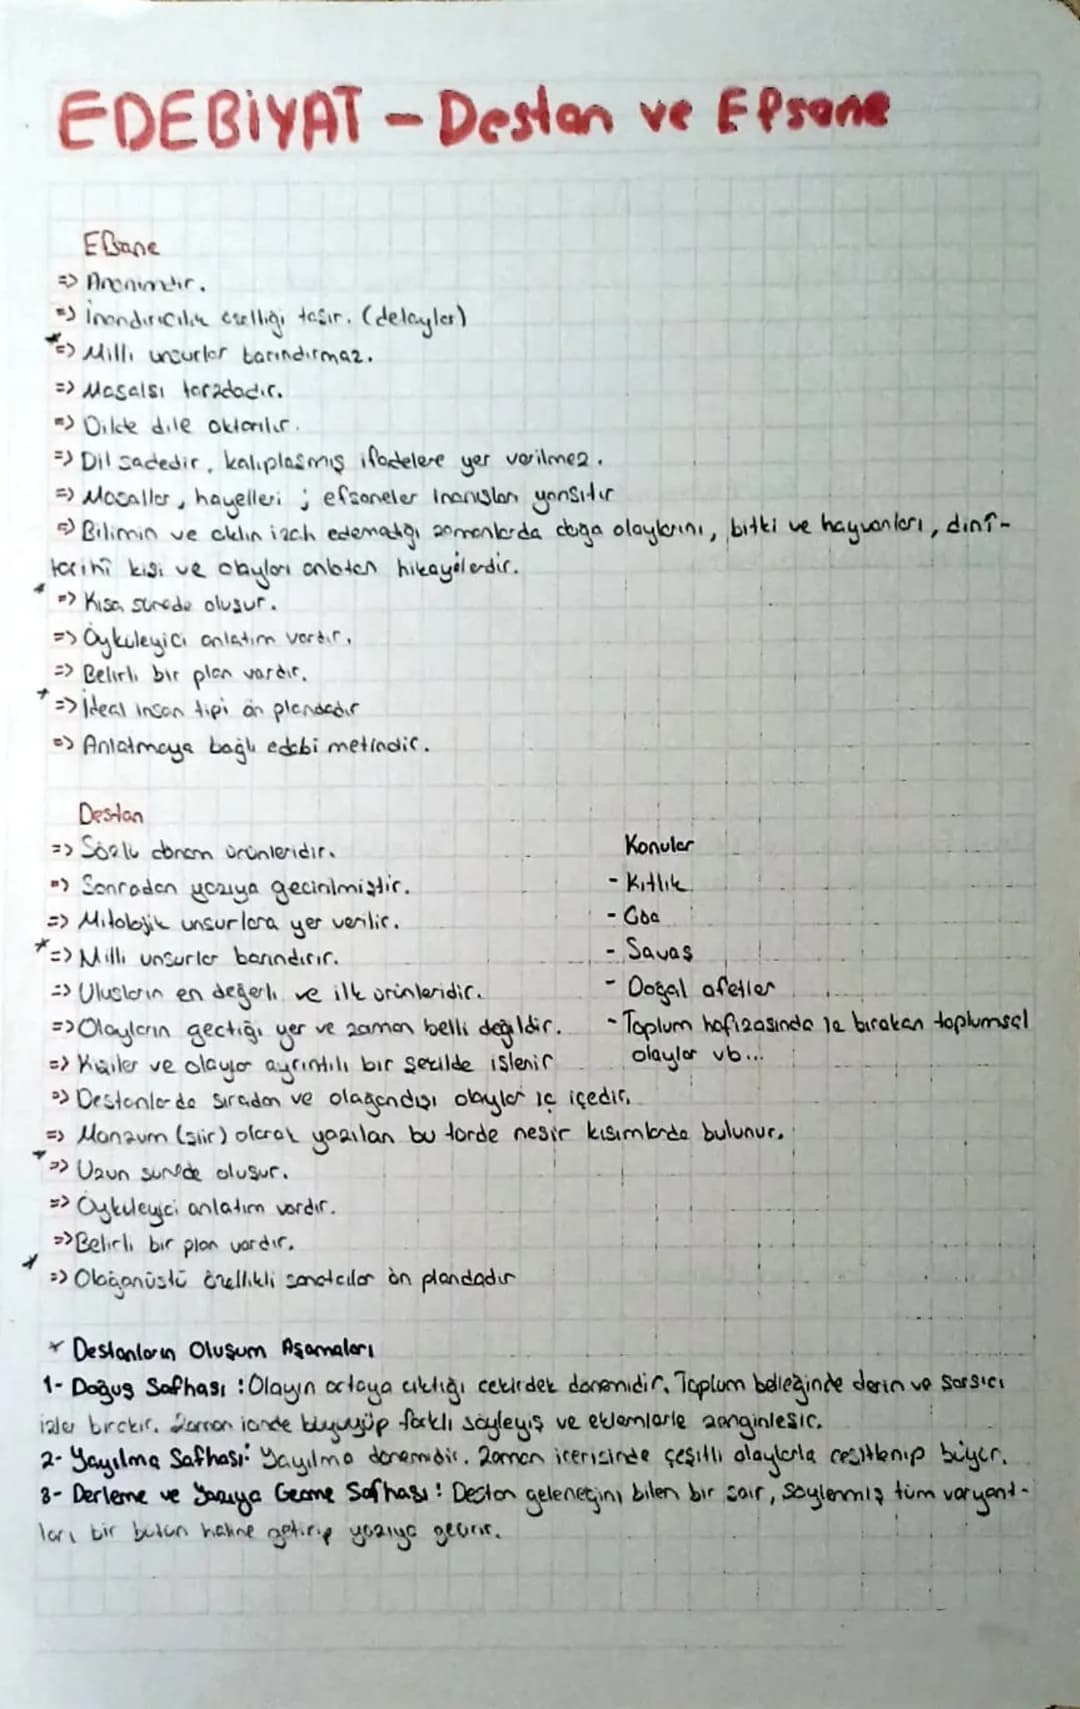 EDEBİYAT - Destan ve Efsane
Efsane
=> Anonimdir.
=> İnandırıcılık özelliği taşır. (delaylar)
*=> Milli unsurlar barındırmaz.
=> Masalsı tarzdadır.
=> Dilde dile aktarılır.
=> Dil sadedir, kalıplaşmış ifadelere yer verilmez.
=> Masallar, hayelleri ; efsaneler inanışları yansıtır
=> Bilimin ve aklın izah edemediği zamanlarda doğa olaylarını, bitki ve hayvanları, dinî-
tarihî kişi ve olayları anlatan hikayelerdir.
* => Kısa sürede oluşur.
=> Öyküleyici anlatım vardır.
=> Belirli bir plan vardır.
* => İdeal insan tipi ön plandadır
=> Anlatmaya bağlı edebi metindir.
Destan
=> Sözlü dönem ürünleridir.
=> Sonradan yazıya geçirilmiştir.
=> Mitolojik unsurlara yer verilir.
*=> Milli unsurlar barındırır.
=> Ulusların en değerli ve ilk ürünleridir.
=> Olayların geçtiği yer ve zaman belli değildir.
=> Kişiler ve olaylar ayrıntılı bir şekilde işlenir
=> Destanlarda sıradan ve olağandışı olaylar iç içedir.
=> Manzum (şiir) olarak yazılan bu türde nesir kısımlarda bulunur.
* => Uzun sürede oluşur.
=> Öyküleyici anlatım vardır.
=> Belirli bir plan vardır.
* => Olağanüstü özellikli sanatcılar ön plandadır
Konular
- Kıtlık
- Göç
- Savaş
- Doğal afetler
- Toplum hafızasında iz bırakan toplumsal
olaylar vb...
* Destanların Oluşum Aşamaları
1- Doğuş Safhası : Olayın ortaya çıktığı çekirdek dönemidir. Toplum belleğinde derin ve sarsıcı
izler bırakır. Zaman içinde büyüyüp farklı söyleyiş ve eklemlerle zenginleşir.
2- Yayılma Safhası: Yayılma dönemidir. Zaman içerisinde çeşitli olaylarla çeşitlenip büyür.
3- Derleme ve Yazıya Geçme Safhası : Destan geleneğini bilen bir şair, söylenmiş tüm varyant-
ları bir bütün haline getirip yazıya geçirir.